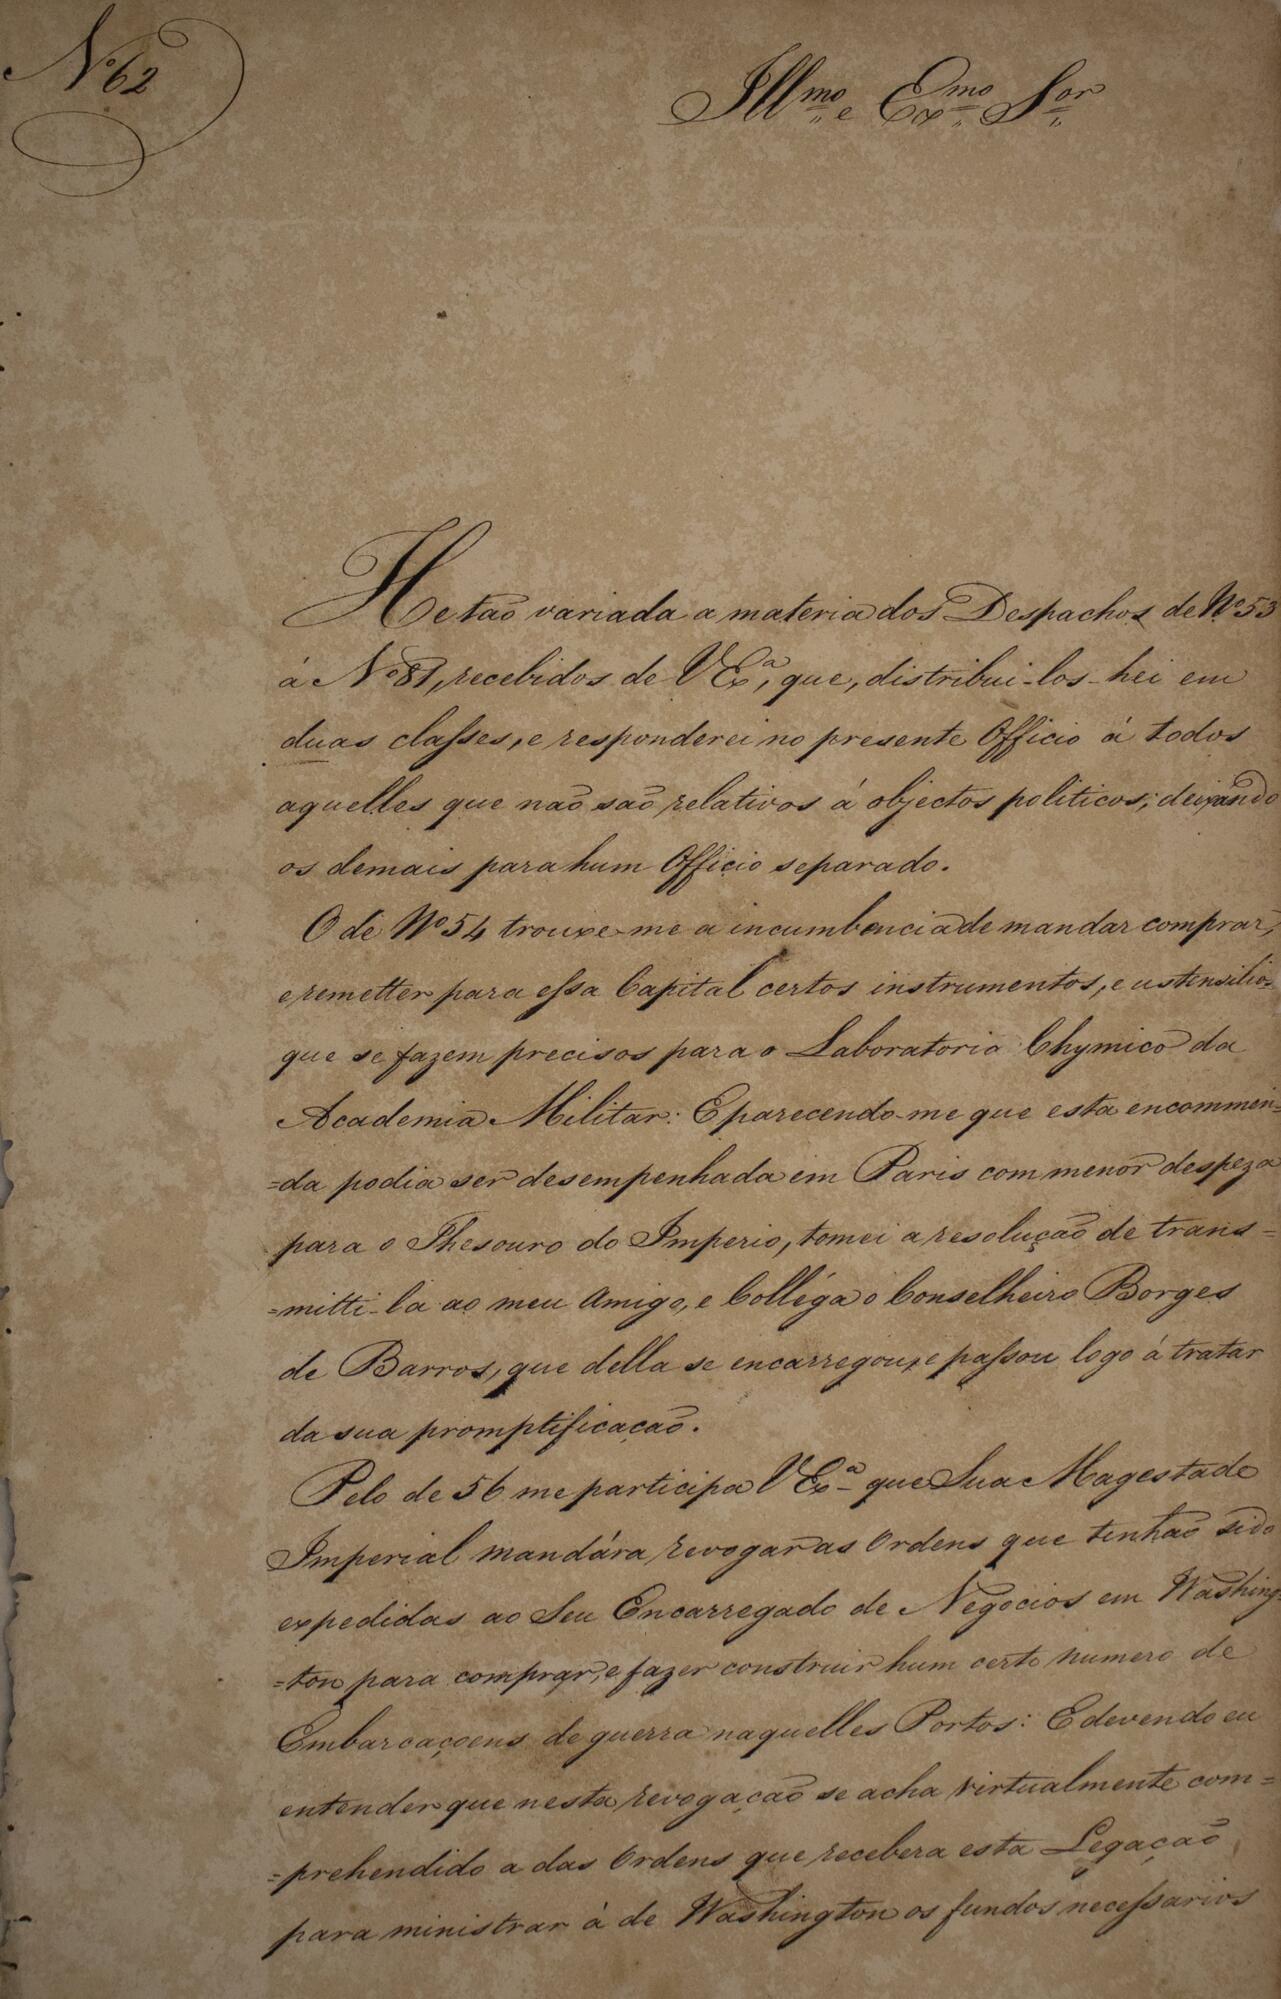 Nº 62
Illmo e Exmo Sor
He taõ variada a materia dos Despachos de Nº 53
á Nº 81, recebidos de V Exa, que, distribui-los-hei em
duas classes, e responderei no presente Officio á todos
aquelles que naõ saõ relativos á objectos politicos; deixando
os demais para hum Officio separado.
O de Nº 54 trouxe-me a incumbencia de mandar comprar,
e remetter para essa Capital certos instrumentos, e ustensilios
que se fazem precisos para o Laboratorio Chymico da
Academia Militar: E parecendo-me que esta encommen=
=da podia ser desempenhada em Paris com menor despeza
para o Thesouro do Imperio, tomei a resoluçaõ de trans=
=mitti-la ao meu Amigo, e Colléga o Conselheiro Borges
de Barros, que della se encarregou, e passou logo á tratar
da sua promptificaçaõ.
Pelo de 56 me participa V Exa que Sua Magestade
Imperial mandára revogar as Ordens que tinhaõ sido
expedidas ao Seu Encarregado de Negocios em Washing=
=ton para comprar, e fazer construir hum certo numero de
Embarcaçoens de guerra naquelles Portos: E devendo eu
entender que nesta revogaçaõ se acha virtualmente com=
=prehendido a das Ordens que recebera esta Legaçaõ
para ministrar á de Washington os fundos necessarios